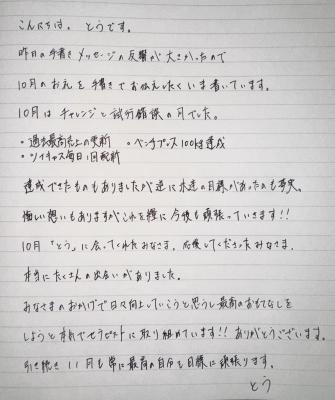 こんにちは。 とうです。
昨日の手書きメッセージの反響が大きかったので
10月のお礼を手書きでお伝えしたくいま書いています。
10月はチャレンジと試行錯誤の月でした。
・過去最高売上の更新 ・ベンチプレス100kg達成
・ツイキャス毎日1回配信
達成できたものもありましたが逆に未達の目標があったのも事実。
悔しい想いもありますがこれを糧に今後も頑張っていきます!!
10月「とう」に会ってくれたみなさま、応援してくださったみなさま、
本当にたくさんの出会いがありました。
みなさまのおかげで日々向上していこうと思うし最高のおもてなしを
しようと本気でセラピストに取り組めています!! ありがとうございます。
引き続き11月も常に最高の自分を目標に頑張ります。
とう